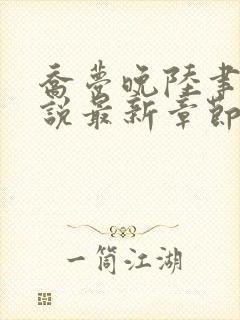 乔梦晚陆聿
说最新章节
一筒江湖